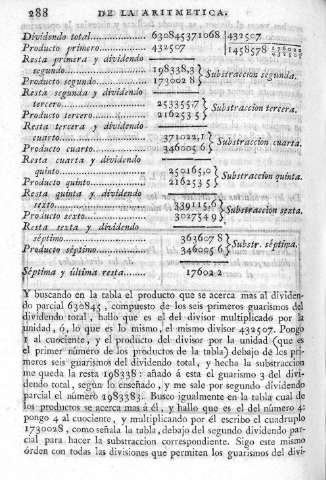 288 DE LA ARITMETICA.
Dividendo total............... 630845371068 | 432507
Producto primero............ 432507 | 1458578 176022/432507
Resta primera y dividendo
segundo..................... 198338,3 } Substraccion segunda.
Producto segundo........... 173002 8
Resta segunda y dividendo
tercero..................... 2533555 7 } Substraccion tercera.
Producto tercero............ 216253 5
Resta tercera y dividendo
cuarto...................... 371022,1 } Substraccion cuarta.
Producto cuarto............ 346005 6
Resta cuarta y dividendo
quinto...................... 250165,0 } Substraccion quinta.
Producto quinto............. 216253 5
Resta quinta y dividendo
sexto....................... 339115,6 } Substraccion sexta.
Producto sexto.............. 302754 9
Resta sexta y dividendo
séptimo..................... 363607 8 } Substr. séptima.
Producto séptimo............ 346005 6
Séptima y última resta....... 17602 2
Y buscando en la tabla el producto que se acerca mas al dividen-
do parcial 630845, compuesto de los seis primeros guarismos del
dividendo total, hallo que es el del divisor multiplicado por la
unidad, ó, lo que es lo mismo, el mismo divisor 432507. Pongo
1 al cuociente, y el producto del divisor por la unidad (que es
el primer número de los productos de la tabla) debajo de los pri-
meros seis guarismos del dividendo total, y hecha la substraccion
me queda la resta 198338: añado á esta el guarismo 3 del divi-
dendo total, segun lo enseñado, y me sale por segundo dividendo
parcial el número 1983383. Busco igualmente en la tabla cual de
los productos se acerca mas á él, y hallo que es el del número 4:
pongo 4 al cuociente, y multiplicando por él escribo el cuadruplo
1730028, como señala la tabla, debajo del segundo dividendo par-
cial para hacer la substraccion correspondiente. Sigo este mismo
órden con todas las divisiones que permiten los guarismos del divi-